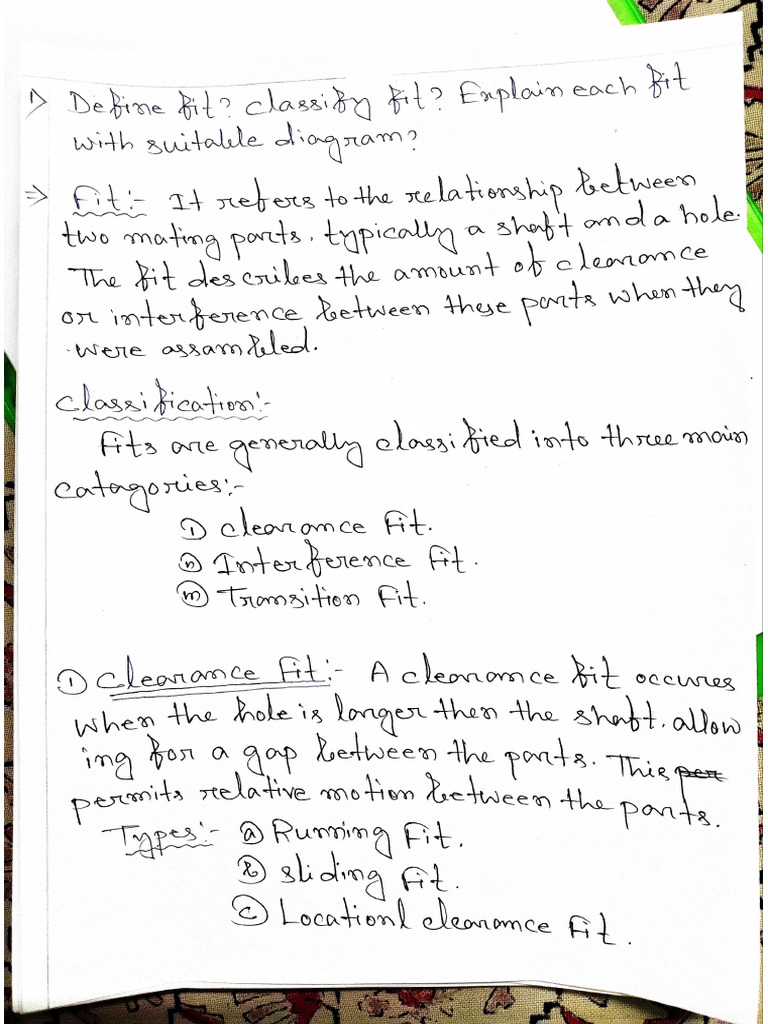 1) Define fit? classify fit? Explain each fit
with suitable diagram?
⇒ Fit:- It refers to the relationship between
two mating parts, typically a shaft and a hole.
The fit describes the amount of clearance
or interference between these parts when they
were assambled.
classification:-
Fits are generally classified into three main
catagories:-
① clearance Fit.
ⓘⓘ Interference Fit.
ⓘⓘⓘ Transition Fit.
① Clearance Fit:- A clearance fit occures
when the hole is larger then the shaft, allow
ing for a gap between the parts. This per
permits relative motion between the parts.
Types:- ⓐ Running Fit.
ⓑ sliding Fit.
ⓒ Locationl clearance Fit.